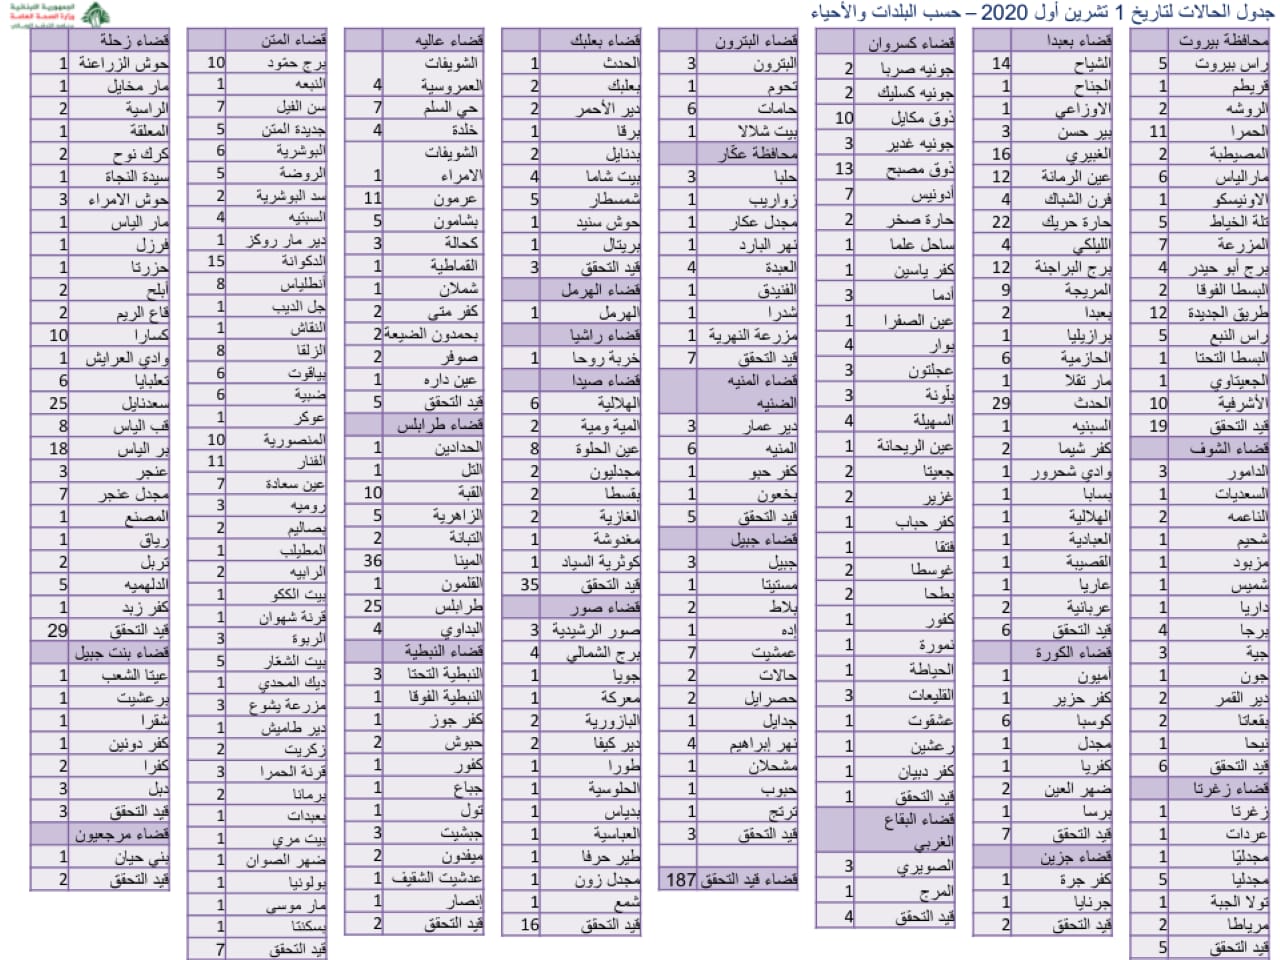 جدول الحالات لتاريخ 1 تشرين أول 2020 – حسب البلدات والأحياء
الجمهورية اللبنانية
وزارة الصحة العامة
محافظة بيروت
راس بيروت 5
قريطم 1
الروشه 2
الحمرا 11
المصيطبة 2
مارالياس 6
الاونيسكو 1
تلة الخياط 5
المزرعة 7
برج أبو حيدر 4
البسطا الفوقا 2
طريق الجديدة 12
راس النبع 5
البسطا التحتا 1
الجعيتاوي 1
الأشرفية 10
قيد التحقق 19
قضاء الشوف
الدامور 3
السعديات 1
الناعمه 2
شحيم 1
مزبود 1
شميس 1
داريا 1
برجا 4
جية 3
جون 1
دير القمر 2
بقعاتا 2
نيحا 1
قيد التحقق 6
قضاء زغرتا
زغرتا 1
عردات 1
مجدليّا 1
مجدليا 5
تولا الجبة 1
مرياطا 2
قيد التحقق 5
قضاء بعبدا
الشياح 14
الجناح 1
الاوزاعي 1
بير حسن 3
الغبيري 16
عين الرمانة 12
فرن الشباك 4
حارة حريك 22
الليلكي 4
برج البراجنة 12
المريجة 9
بعبدا 2
برازيليا 1
الحازمية 6
مار تقلا 1
الحدث 29
السبنيه 1
كفر شيما 2
وادي شحرور 1
بسابا 1
الهلالية 1
العبادية 1
القصيبة 1
عاريا 1
عربانية 2
قيد التحقق 6
قضاء الكورة
أميون 1
كفر حزير 1
كوسبا 6
مجدل 1
كفريا 1
ضهر العين 2
برسا 1
قيد التحقق 7
قضاء جزين
كفر جرة 1
جرنايا 1
قيد التحقق 2
قضاء كسروان
جونيه صربا 2
جونيه كسليك 2
ذوق مكايل 10
جونيه غدير 3
ذوق مصبح 13
أدونيس 7
حارة صخر 2
ساحل علما 1
كفر ياسين 1
أدما 3
عين الصفرا 1
بوار 4
عجلتون 3
بلّونة 3
السهيلة 4
عين الريحانة 1
جعيتا 2
غزير 2
كفر حباب 1
فتقا 1
غوسطا 2
بطحا 2
كفور 1
نمورة 1
الحياطة 1
القليعات 3
عشقوت 1
رعشين 1
كفر دبيان 1
قيد التحقق 1
قضاء البقاع
الغربي
الصويري 3
المرج 1
قيد التحقق 4
قضاء البترون
البترون 3
تحوم 1
حامات 6
بيت شلالا 1
محافظة عكّار
حلبا 3
زواريب 1
مجدل عكار 1
نهر البارد 1
العبدة 4
الفنيدق 1
شدرا 1
مزرعة النهرية 1
قيد التحقق 7
قضاء المنيه
الضنيه
دير عمار 3
المنيه 6
كفر حبو 1
بخعون 1
قيد التحقق 5
قضاء جبيل
جبيل 3
مستيتا 1
بلاط 2
إده 1
عمشيت 7
حالات 2
حصرايل 2
جدايل 1
نهر إبراهيم 4
مشحلان 1
حبوب 1
ترتج 1
قيد التحقق 3
قضاء قيد التحقق 187
قضاء بعلبك
الحدث 1
بعلبك 2
دير الأحمر 2
برقا 1
بدنايل 2
بيت شاما 4
شمسطار 5
حوش سنيد 1
بريتال 1
قيد التحقق 3
قضاء الهرمل
الهرمل 1
قضاء راشيا
خربة روحا 1
قضاء صيدا
الهلالية 6
المية ومية 2
عين الحلوة 8
مجدليون 2
بقسطا 2
الغازية 2
مغدوشة 1
كوثرية السياد 1
قيد التحقق 35
قضاء صور
صور الرشيدية 3
برج الشمالي 4
جويا 1
معركة 1
البازورية 2
دير كيفا 2
طورا 1
الحلوسية 1
بدياس 1
العباسية 1
طير حرفا 1
مجدل زون 1
شمع 1
قيد التحقق 16
قضاء عاليه
الشويفات
العمروسية 4
حي السلم 7
خلدة 4
الشويفات
الامراء 1
عرمون 11
بشامون 5
كحالة 3
القماطية 1
شملان 1
كفر متي 2
بحمدون الضيعة 2
صوفر 2
عين داره 1
قيد التحقق 5
قضاء طرابلس
الحدادين 1
التل 1
القبة 10
الزاهرية 5
التبانة 2
المينا 36
القلمون 1
طرابلس 25
البداوي 4
قضاء النبطية
النبطية التحتا 3
النبطية الفوقا 1
كفر جوز 1
حبوش 2
كفور 1
جباع 1
تول 1
جبشيت 3
ميفدون 2
عدشيت الشقيف 1
إنصار 1
قيد التحقق 2
قضاء المتن
برج حمّود 10
النبعه 1
سن الفيل 7
جديدة المتن 5
البوشرية 6
الروضة 5
سد البوشرية 2
السبتيه 4
دير مار روكز 1
الدكوانة 15
أنطلياس 8
جل الديب 1
النقاش 1
الزلقا 8
بياقوت 6
ضبية 6
عوكر 1
المنصورية 10
الفنار 11
عين سعادة 7
روميه 3
بصاليم 2
المطيلب 1
الرابيه 2
بيت الككو 1
قرنة شهوان 1
الربوة 3
بيت الشعّار 5
ديك المحدي 1
مزرعة يشوع 3
دير طاميش 1
زكريت 2
قرنة الحمرا 3
برمانا 2
بعبدات 1
بيت مري 1
ضهر الصوان 1
بولونيا 1
مار موسى 1
بسكنتا 1
قيد التحقق 7
قضاء زحلة
حوش الزراعنة 1
مار مخايل 1
الراسية 2
المعلقة 1
كرك نوح 2
سيدة النجاة 1
حوش الامراء 3
مار الياس 1
فرزل 1
حزرتا 1
أبلح 2
قاع الريم 2
كسارا 10
وادي العرايش 1
تعلبايا 6
سعدنايل 25
قب الياس 8
بر الياس 18
عنجر 3
مجدل عنجر 7
المصنع 1
رياق 1
تربل 2
الدلهميه 5
كفر زبد 1
قيد التحقق 29
قضاء بنت جبيل
عيتا الشعب 1
برعشيت 1
شقرا 1
كفر دونين 1
كفرا 2
دبل 3
قيد التحقق 3
قضاء مرجعيون
بني حيان 1
قيد التحقق 2